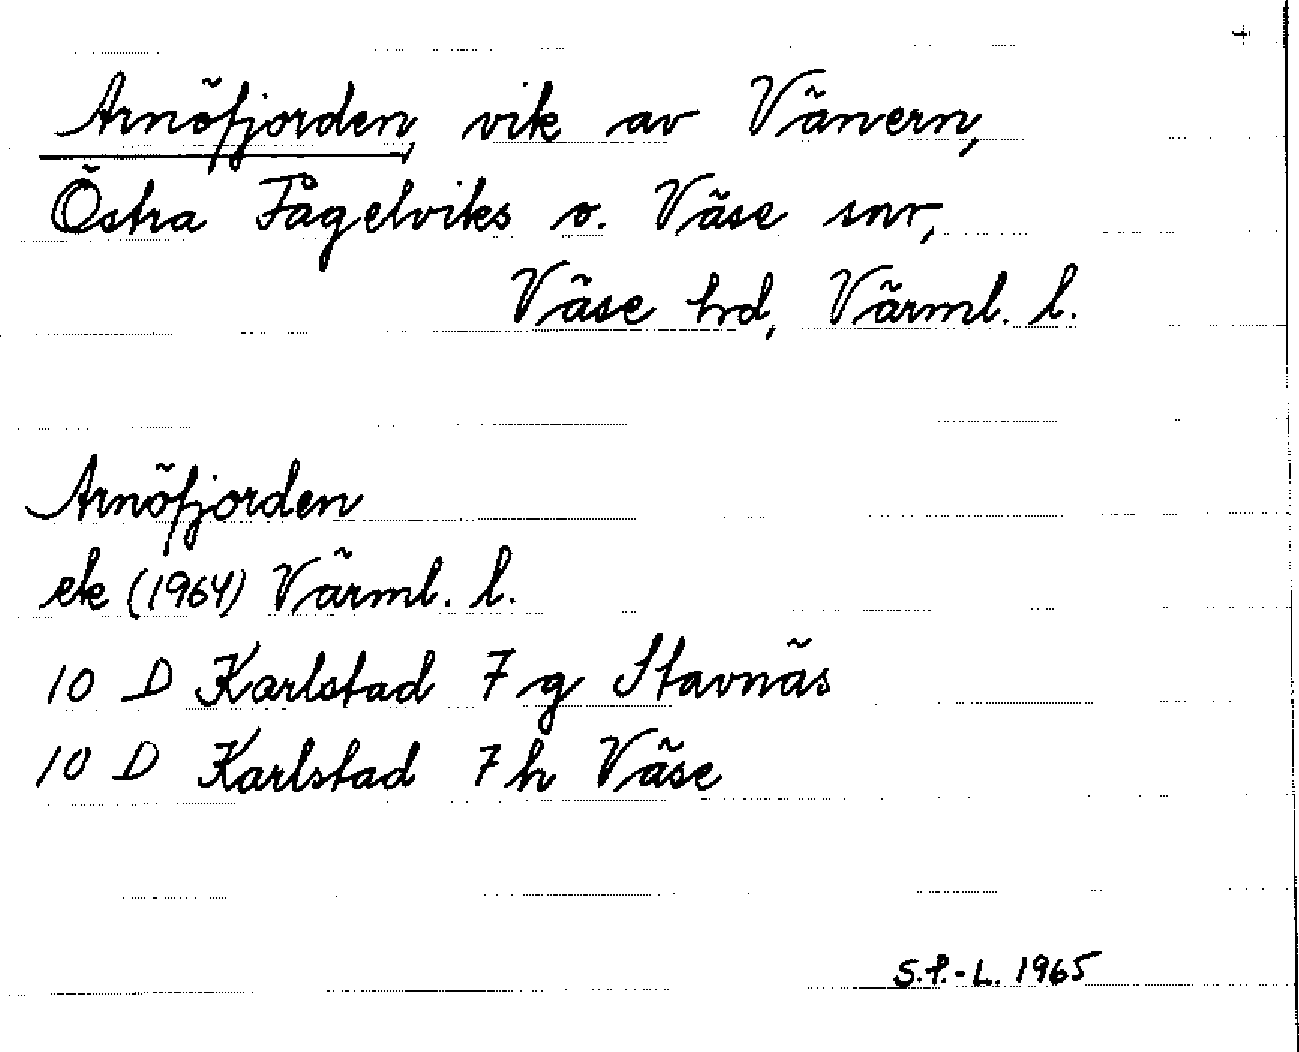 Arnöfjorden, vik av Vänern,
Östra Fågelviks o. Väse snr,
Väse hrd, Värml. l.
Arnöfjorden
ek (1964) Värml. l.
10 D Karlstad 7 g Stavnäs
10 D Karlstad 7 h Väse
S.P.-L. 1965